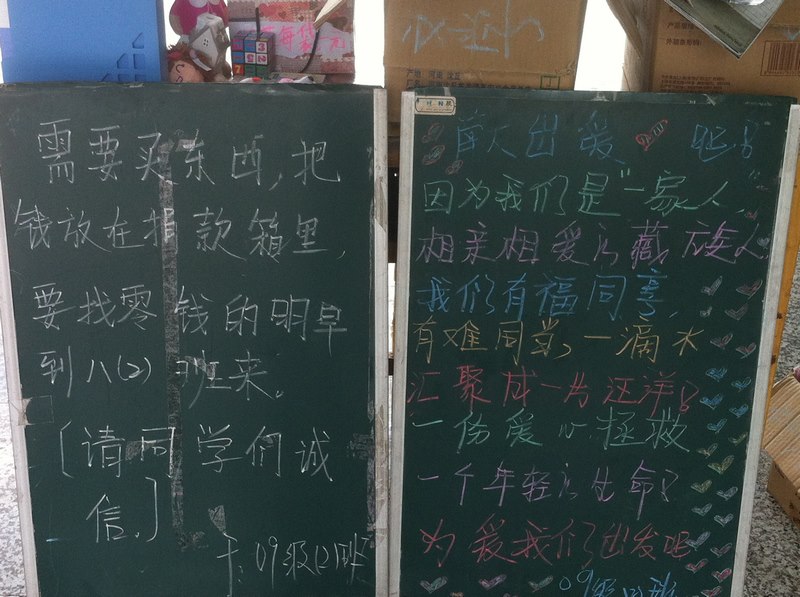 需要买东西,把
钱放在捐款箱里,
要找零钱的明早
到八(2)班来。
[请同学们诚
信.]
09级(2)班
出爱
吧!
因为我们是"一家人"
相亲相爱的藏族人
我们有福同享,
有难同当,一滴水
汇聚成一片汪洋!
一份爱心拯救
一个年轻的生命!
为爱我们出发吧
09级(2)班